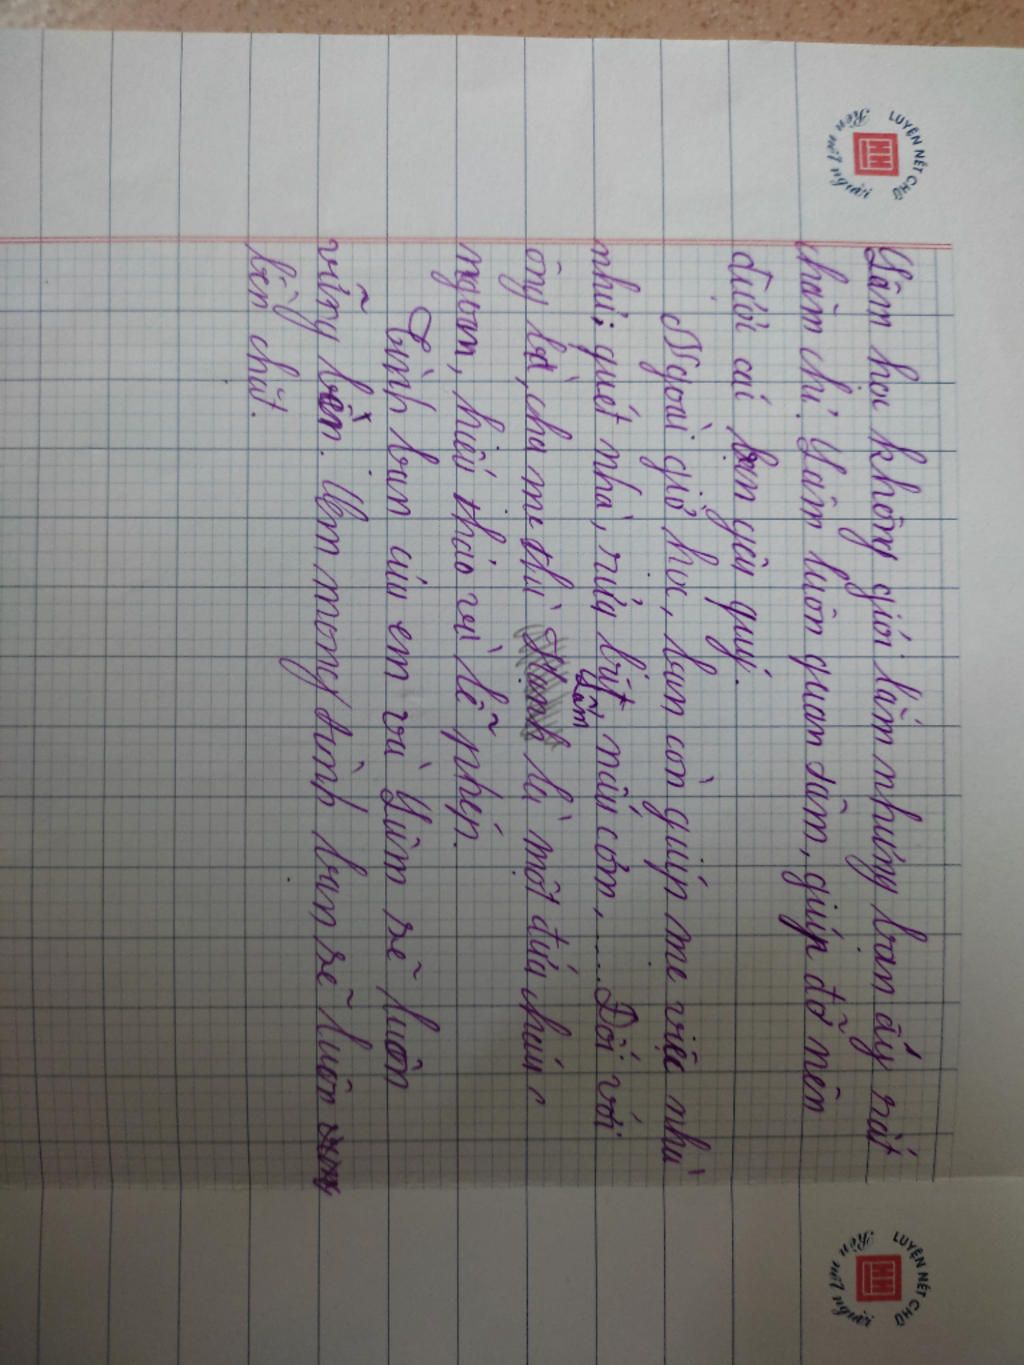 LUYỆN NÉT CHỮ
Rèn nết người
LUYỆN NÉT CHỮ
Rèn nết người
Lâm học không giỏi lắm nhưng bạn ấy rất
chăm chỉ. Lâm luôn quan tâm, giúp đỡ nên
được cái bạn yêu quý.
Ngoài giờ học, bạn còn giúp mẹ việc nhà
như: quét nhà, rửa bát, nấu cơm, ..... Đối với
ông bà, cha mẹ thì Lâm là một đứa cháu
ngoan, hiếu thảo và lễ phép.
Tình bạn của em và Lâm sẽ luôn
vững bền. Em mong tình bạn sẽ luôn
bền chặt.